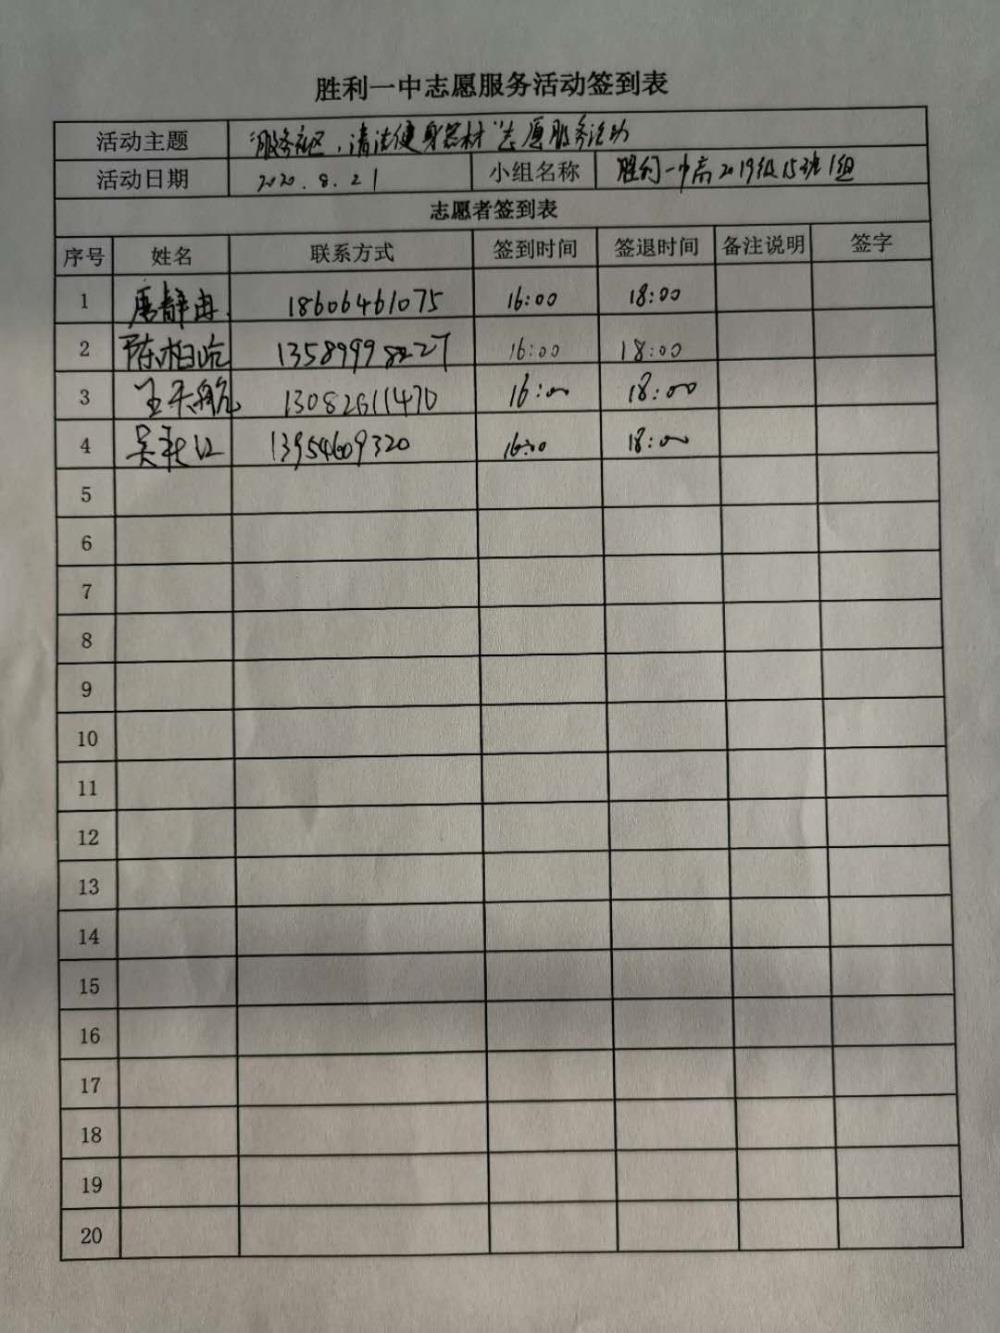 胜利一中志愿服务活动签到表
活动主题 "服务社区,清洁健身器材"志愿服务活动
活动日期 2020.8.21 小组名称 胜利一中高2019级15班1组
志愿者签到表
序号 姓名 联系方式 签到时间 签退时间 备注说明 签字
1 唐静冉 18606461075 16:00 18:00
2 陈柏屹 13589998227 16:00 18:00
3 王天航 13082611470 16:00 18:00
4 吴 13954609320 16:00 18:00
5
6
7
8
9
10
11
12
13
14
15
16
17
18
19
20